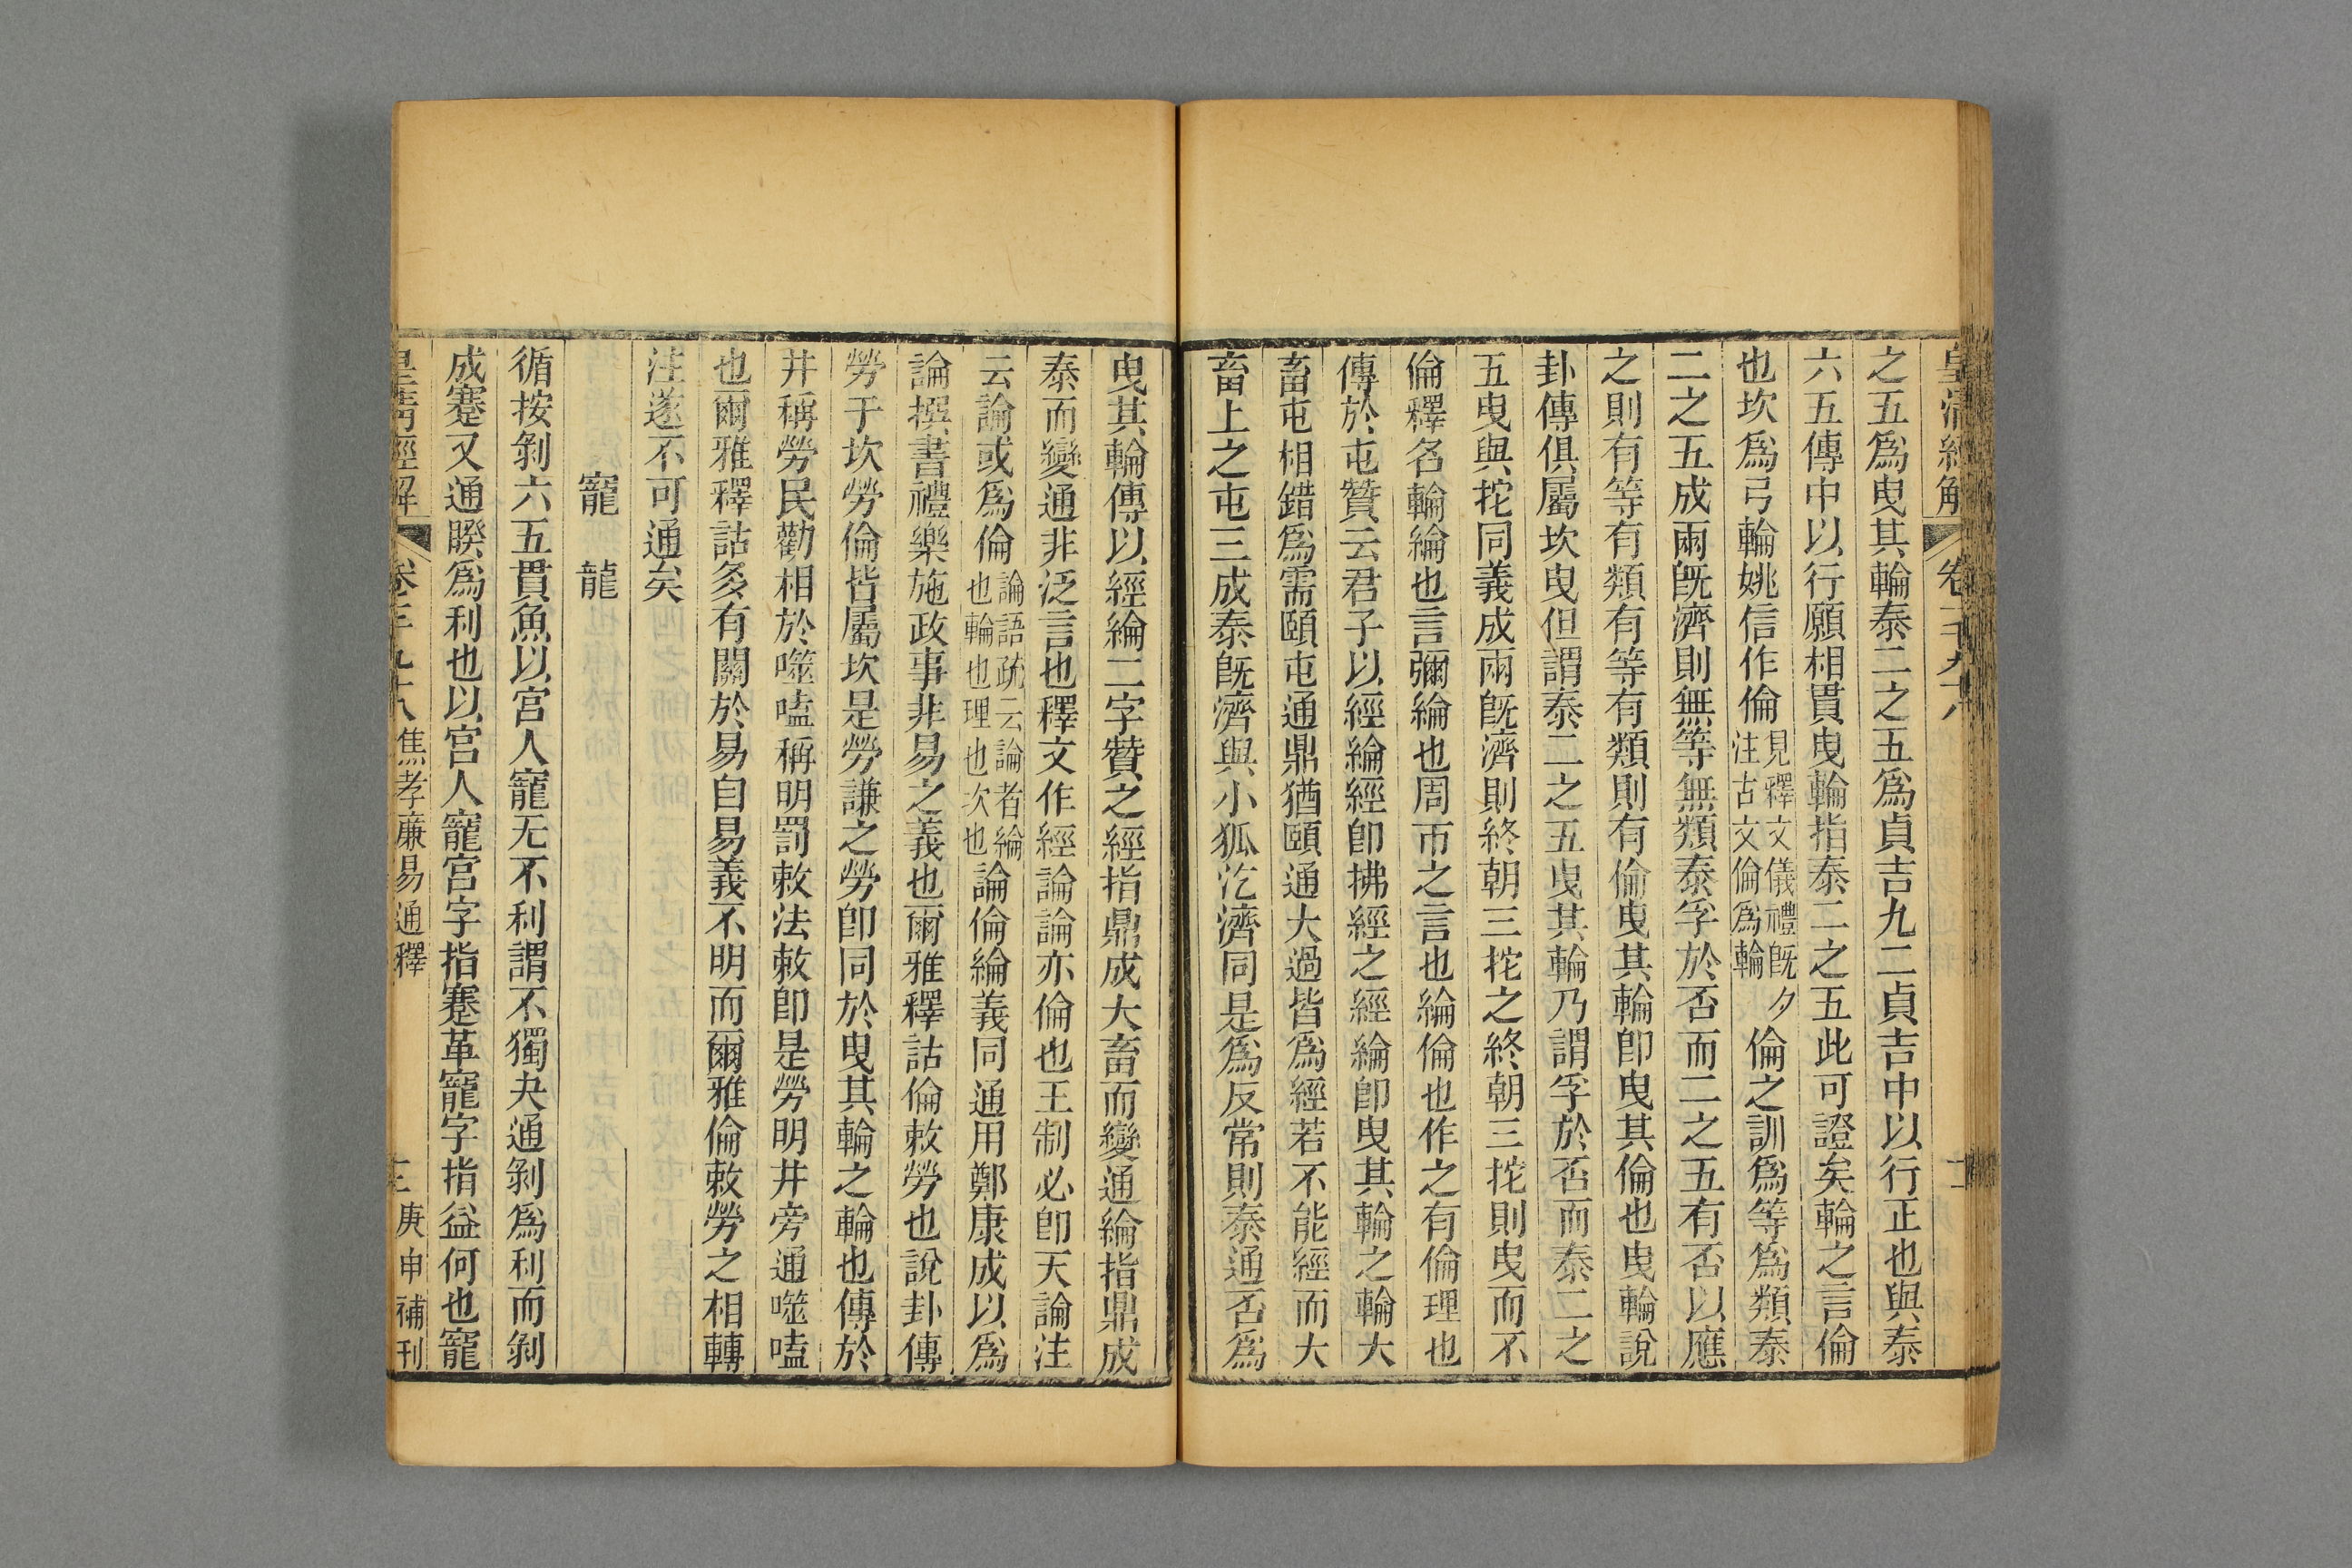 皇清經解 卷千九十八 二
之五爲曳其輪泰二之五爲貞吉九二貞吉中以行正也與泰
六五傳中以行願相貫曳輪指泰二之五此可證矣輪之言倫
也坎爲弓輪姚信作倫見釋文儀禮旣夕注古文倫爲輪倫之訓爲等爲類泰
二之五成兩旣濟則無等無類泰孚於否而二之五有否以應
之則有等有類有等有類則有倫曳其輪卽曳其倫也曳輪說
卦傳俱屬坎曳但謂泰二之五曳其輪乃謂孚於否而泰二之
五曳與拕同義成兩旣濟則終朝三拕之終朝三拕則曳而不
倫釋名輪綸也言彌綸也周帀之言也綸倫也作之有倫理也
傳於屯贊云君子以經綸經卽拂經之經綸卽曳其輪之輪大
畜屯相錯爲需頤屯通鼎猶頤通大過皆爲經若不能經而大
畜上之屯三成泰旣濟與小狐汔濟同是爲反常則泰通否爲
曳其輪傳以經綸二字贊之經指鼎成大畜而變通綸指鼎成
泰而變通非泛言也釋文作經論論亦倫也王制必卽天論注
云論或爲倫論語疏云論者綸也輪也理也次也論倫綸義同通用鄭康成以爲
論撰書禮樂施政事非易之義也爾雅釋詁倫敕勞也說卦傳
勞于坎勞倫皆屬坎是勞謙之勞卽同於曳其輪之輪也傳於
井稱勞民勸相於噬嗑稱明罰敕法敕卽是勞明井旁通噬嗑
也爾雅釋詁多有關於易自易義不明而爾雅倫敕勞之相轉
注遂不可通矣
寵 龍
循按剝六五貫魚以宮人寵无不利謂不獨夬通剝爲利而剝
成蹇又通睽爲利也以宮人寵宮字指蹇革寵字指益何也寵
皇清經解 卷千九十八 焦孝廉易通釋 三 庚申補刊